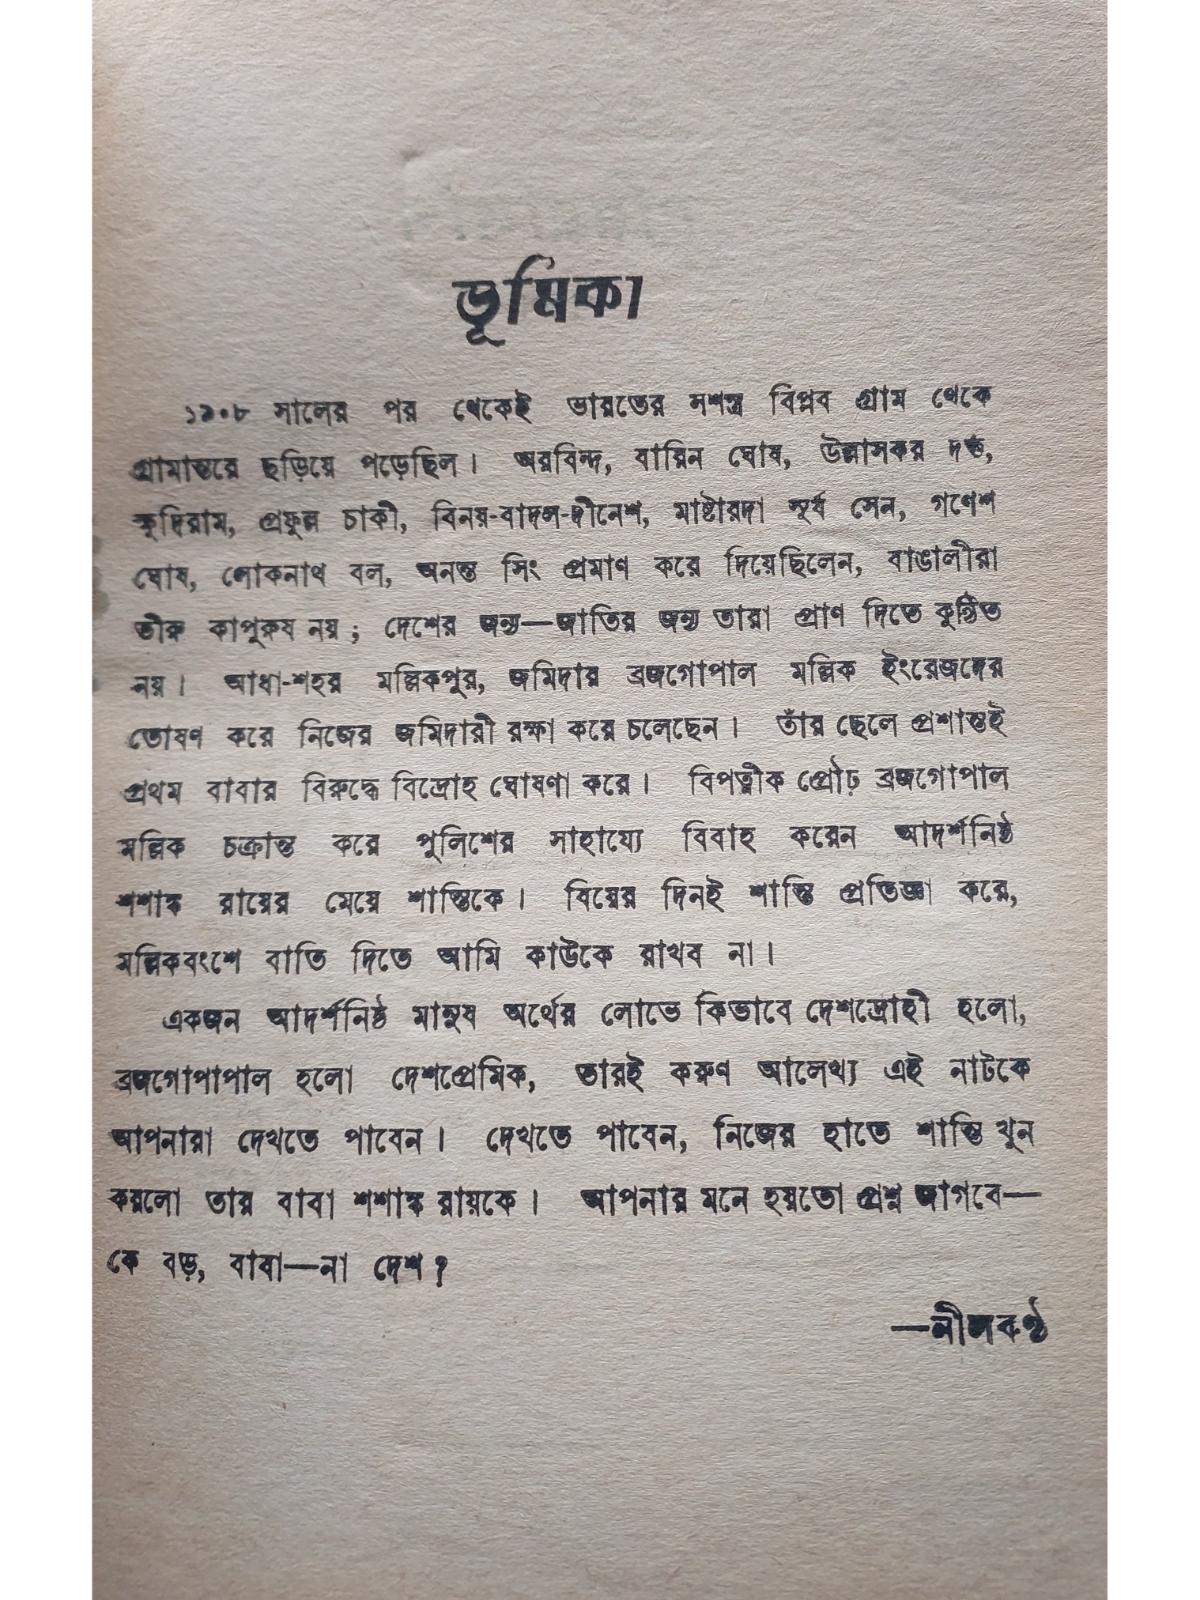 ভূমিকা
১৯০৮ সালের পর থেকেই ভারতের সশস্ত্র বিপ্লব গ্রাম থেকে
গ্রামান্তরে ছড়িয়ে পড়েছিল। অরবিন্দ, বারিন ঘোষ, উল্লাসকর দত্ত,
ক্ষুদিরাম, প্রফুল্ল চাকী, বিনয়-বাদল-দীনেশ, মাষ্টারদা সূর্য সেন, গণেশ
ঘোষ, লোকনাথ বল, অনন্ত সিং প্রমাণ করে দিয়েছিলেন, বাঙালীরা
ভীরু কাপুরুষ নয় ; দেশের জন্য—জাতির জন্য তারা প্রাণ দিতে কুণ্ঠিত
নয়। আধা-শহর মল্লিকপুর, জমিদার ব্রজগোপাল মল্লিক ইংরেজদের
তোষণ করে নিজের জমিদারী রক্ষা করে চলেছেন। তাঁর ছেলে প্রশান্তই
প্রথম বাবার বিরুদ্ধে বিদ্রোহ ঘোষণা করে। বিপত্নীক প্রৌঢ় ব্রজগোপাল
মল্লিক চক্রান্ত করে পুলিশের সাহায্যে বিবাহ করেন আদর্শনিষ্ঠ
শশাঙ্ক রায়ের মেয়ে শান্তিকে। বিয়ের দিনই শান্তি প্রতিজ্ঞা করে,
মল্লিকবংশে বাতি দিতে আমি কাউকে রাখব না।
একজন আদর্শনিষ্ঠ মানুষ অর্থের লোভে কিভাবে দেশদ্রোহী হলো,
ব্রজগোপাপাল হলো দেশপ্রেমিক, তারই করুণ আলেখ্য এই নাটকে
আপনারা দেখতে পাবেন। দেখতে পাবেন, নিজের হাতে শান্তি খুন
করলো তার বাবা শশাঙ্ক রায়কে। আপনার মনে হয়তো প্রশ্ন জাগবে—
কে বড়, বাবা—না দেশ ?
—নীলকণ্ঠ